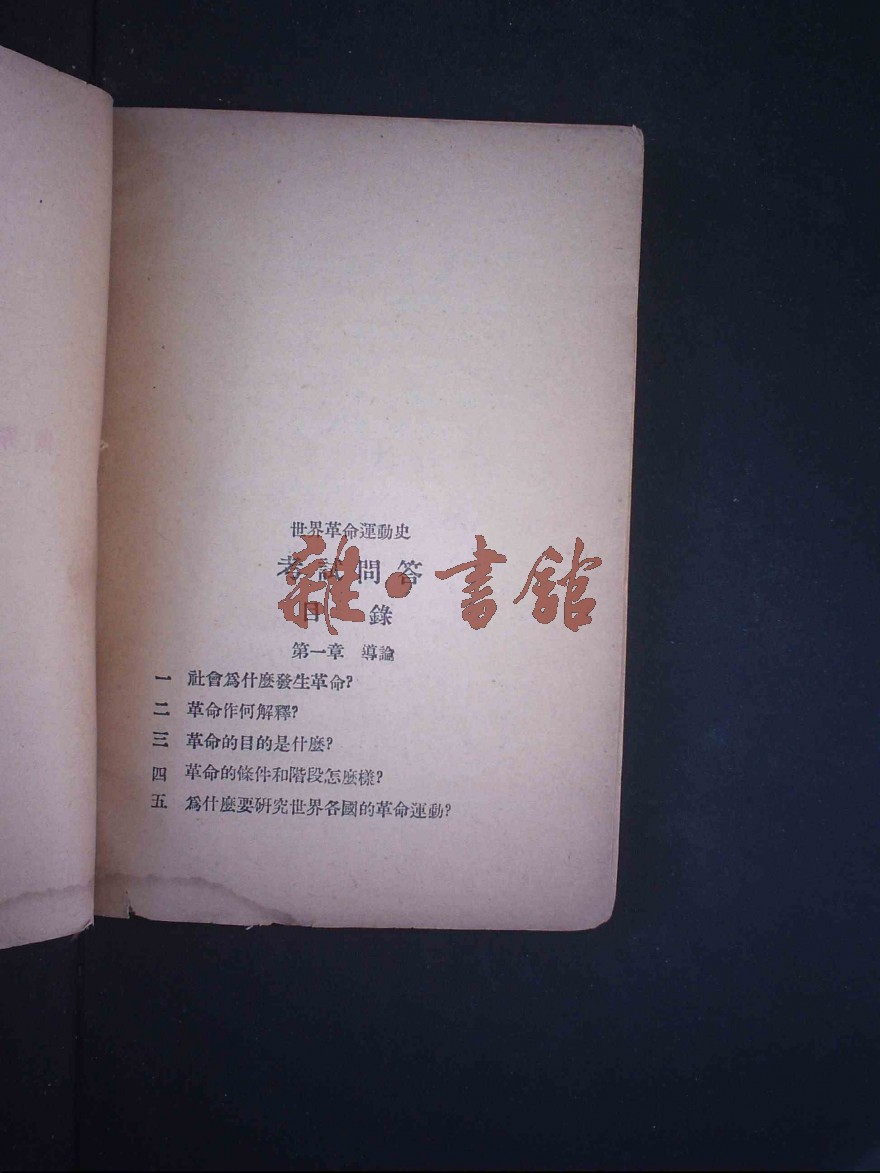 世界革命運動史
考試問答
目錄
第一章 導論
一 社會爲什麼發生革命?
二 革命作何解釋?
三 革命的目的是什麼?
四 革命的條件和階段怎麼樣?
五 爲什麼要研究世界各國的革命運動?
雜·書館